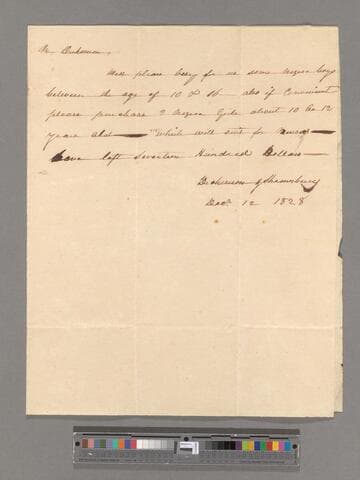 Mr Dickinson,
Will please buy for me some negro boys
between the age of 10 & 16 also if Convenient
please purchase 2 Negro Girls about 10 to 12
years old — While will suit for
have left Seventeen Hundred Dollars —
Dickinson & Shrewsbury
Decr 12 1828